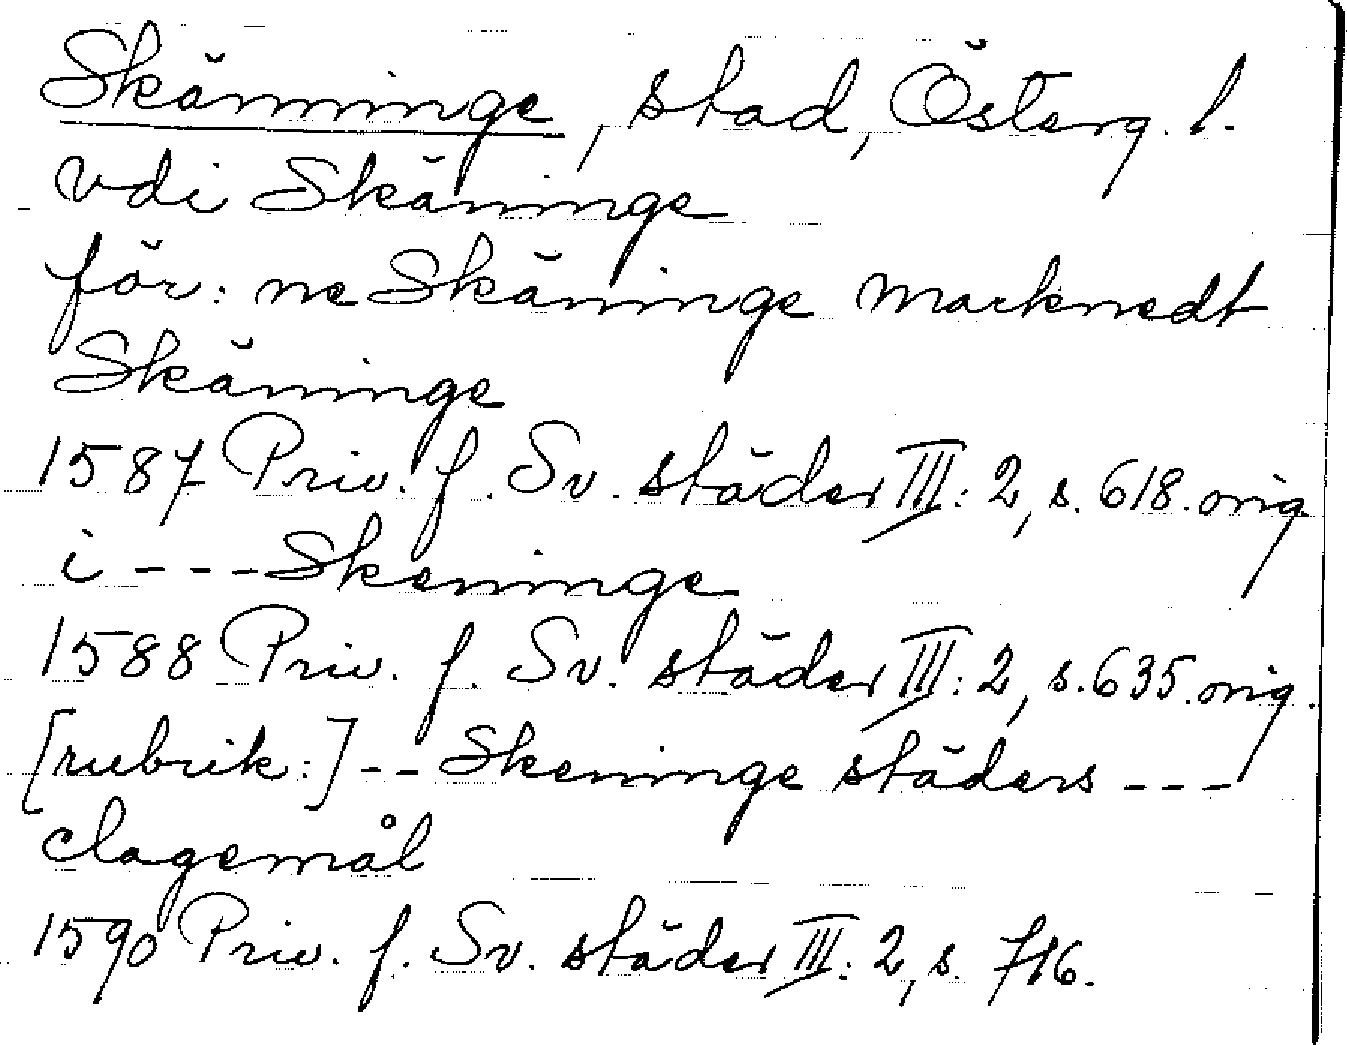 Skänninge, stad, Österg. l.
vdi Skäninge
för: ne Skäninge marknedt
Skäninge
1587 Priv. f. Sv. städer III: 2, s. 618. orig
i --- Skeninge
1588 Priv. f. Sv. städer III: 2, s. 635. orig.
[rubrik:] -- Skeninge städers ---
clagemål
1590 Priv. f. Sv. städer III: 2, s. 716.